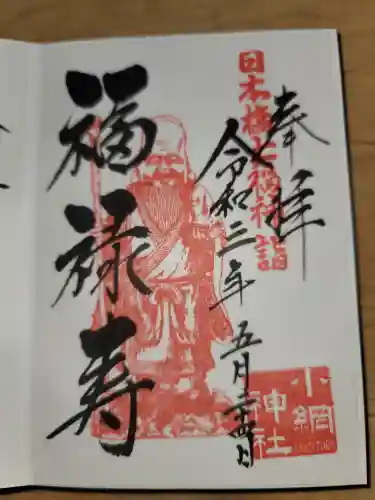 奉拝
日本橋七福神詣
令和三年五月二十四日
福禄寿
小網
神社